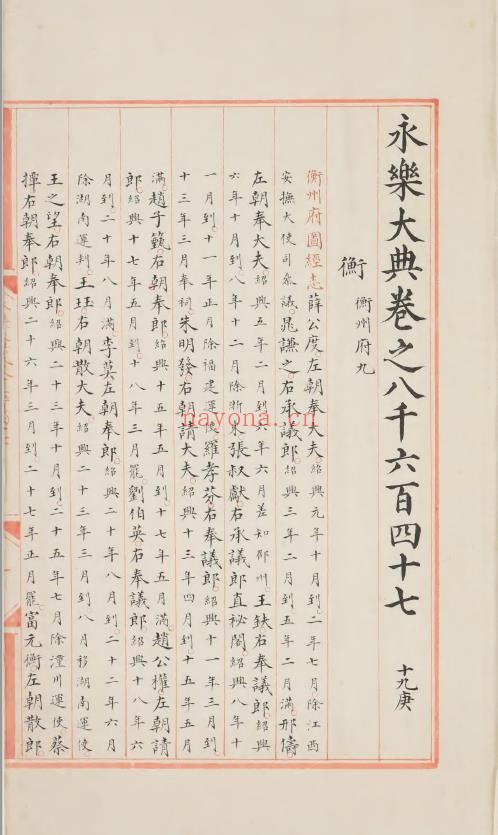 永樂大典卷之八千六百四十七 十九庚
衡 衡州府九
衡州府圖經志薛公度左朝奉大夫紹興元年十月到二年七月除江西
安撫大使司參議晁謙之右承議郎紹興三年二月到五年二月滿邢儔
左朝奉大夫紹興五年二月到六年六月差知邵州王鈇右奉議郎紹興
六年十月到八年十二月除浙東張叔獻右承議郎直祕閣紹興八年十
一月到十一年正月除福建運使羅孝芬右奉議郎紹興十一年三月到
十三年三月奉祠朱明發右朝請大夫紹興十三年四月到十五年五月
滿趙子右朝奉郎紹興十五年五月到十七年五月滿趙公權左朝請
郎紹興十七年五月到十八年三月罷劉伯英右奉議郎紹興十八年六
月到二十年八月滿李莫左朝奉郎紹興二十年八月到二十二年六月
除湖南運判王珏右朝散大夫紹興二十三年三月到八月移湖南運使
王之望右朝奉郎紹興二十三年十月到二十五年七月除潼川運使蔡
撣右朝奉郎紹興二十六年三月到二十七年正月罷富元衡左朝散郎
nayona.cn